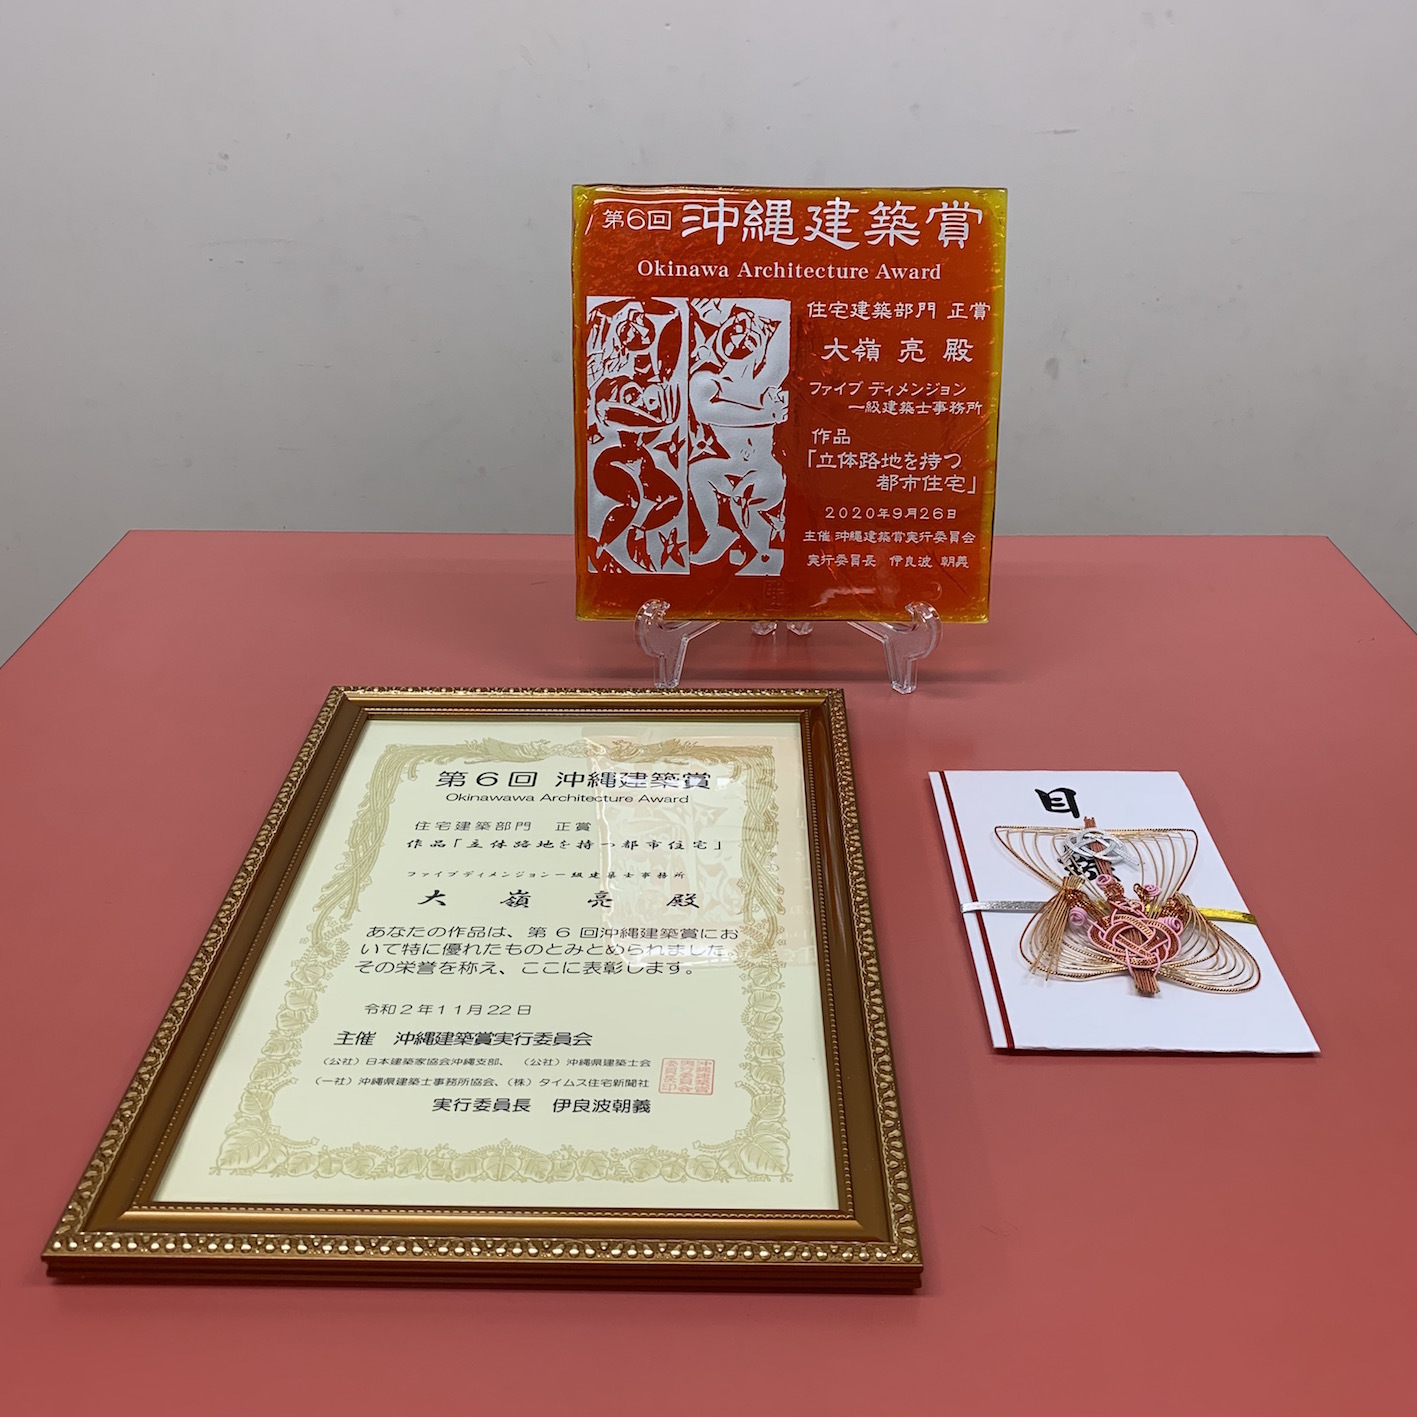 第6回 沖縄建築賞
Okinawa Architecture Award
住宅建築部門 正賞
大嶺 亮 殿
ファイブ ディメンジョン
一級建築士事務所
作品
「立体路地を持つ
都市住宅」
2020年9月26日
主催 沖縄建築賞実行委員会
実行委員長 伊良波 朝義
第6回 沖縄建築賞
Okinawawa Architecture Award
住宅建築部門 正賞
作品「立体路地を持つ都市住宅」
ファイブディメンジョン一級建築士事務所
大嶺 亮 殿
あなたの作品は、第6回沖縄建築賞にお
いて特に優れたものとみとめられました。
その栄誉を称え、ここに表彰します。
令和2年11月22日
主催 沖縄建築賞実行委員会
(公社)日本建築家協会沖縄支部、(公社)沖縄県建築士会
(一社)沖縄県建築士事務所協会、(株)タイムス住宅新聞社
実行委員長 伊良波朝義
目